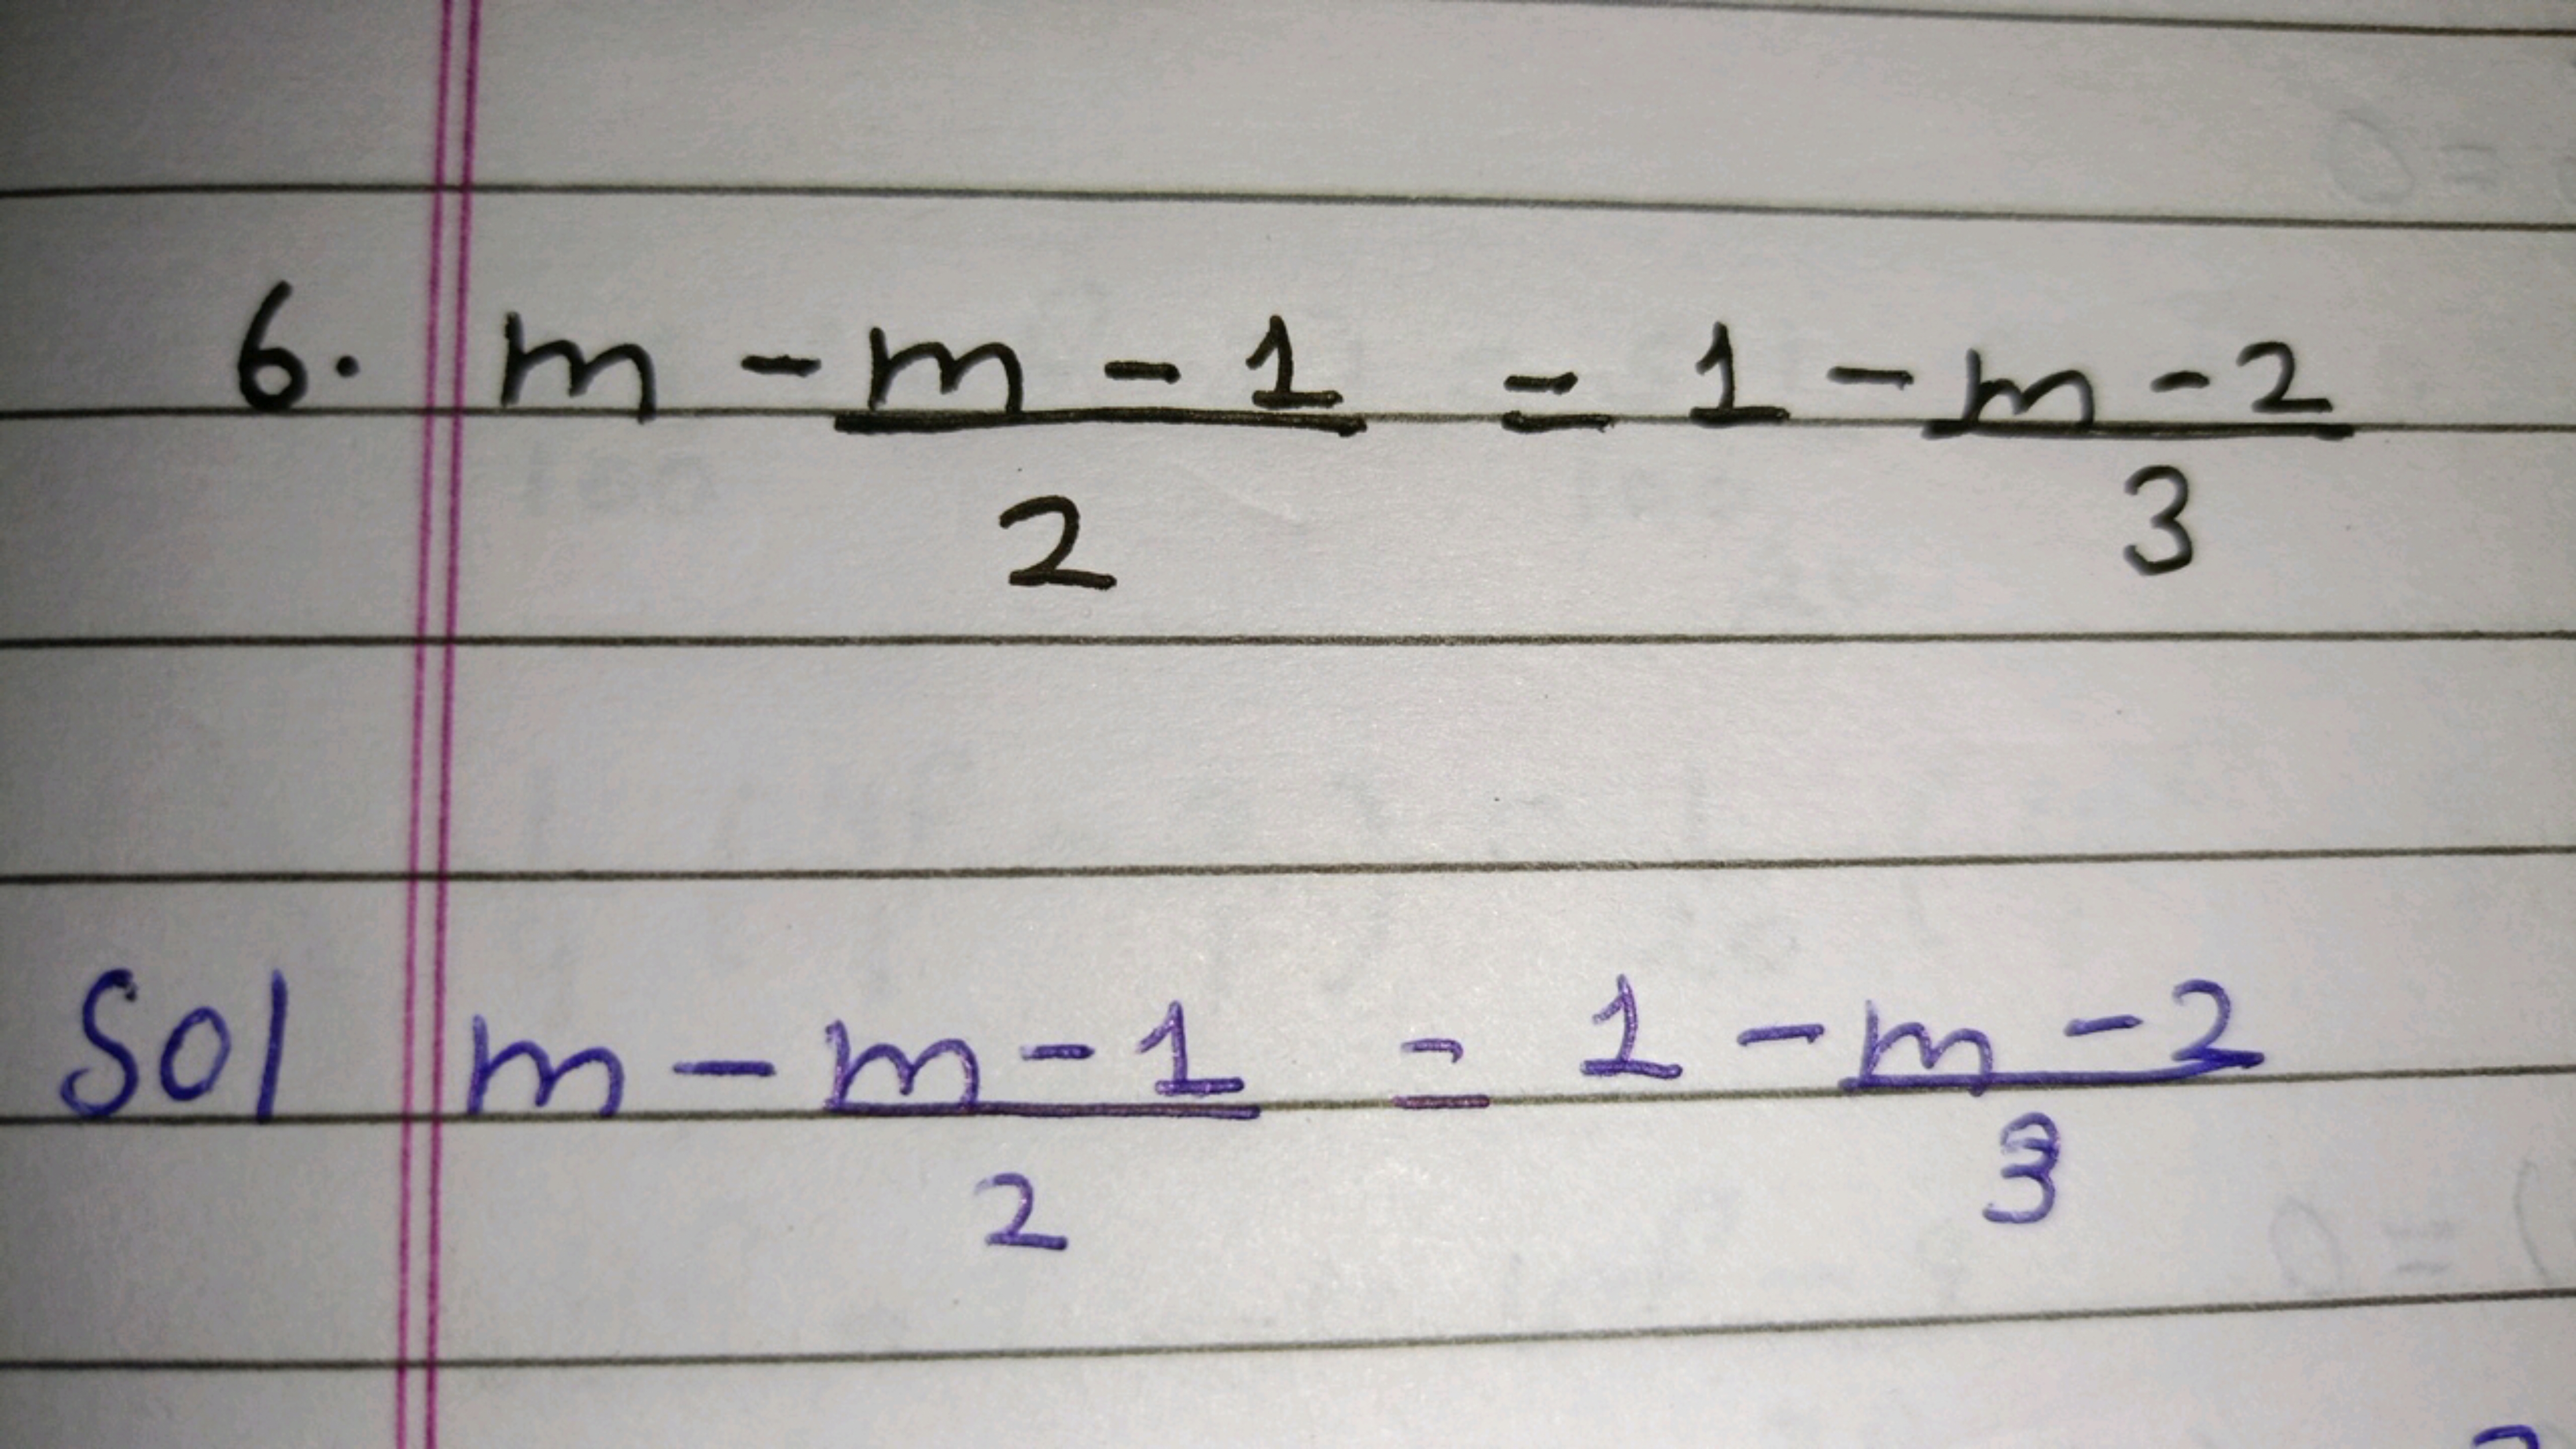 6. m - m - 1 = 1 - m - 2
2 3
Sol m - m - 1 = 1 - m - 2
2 3